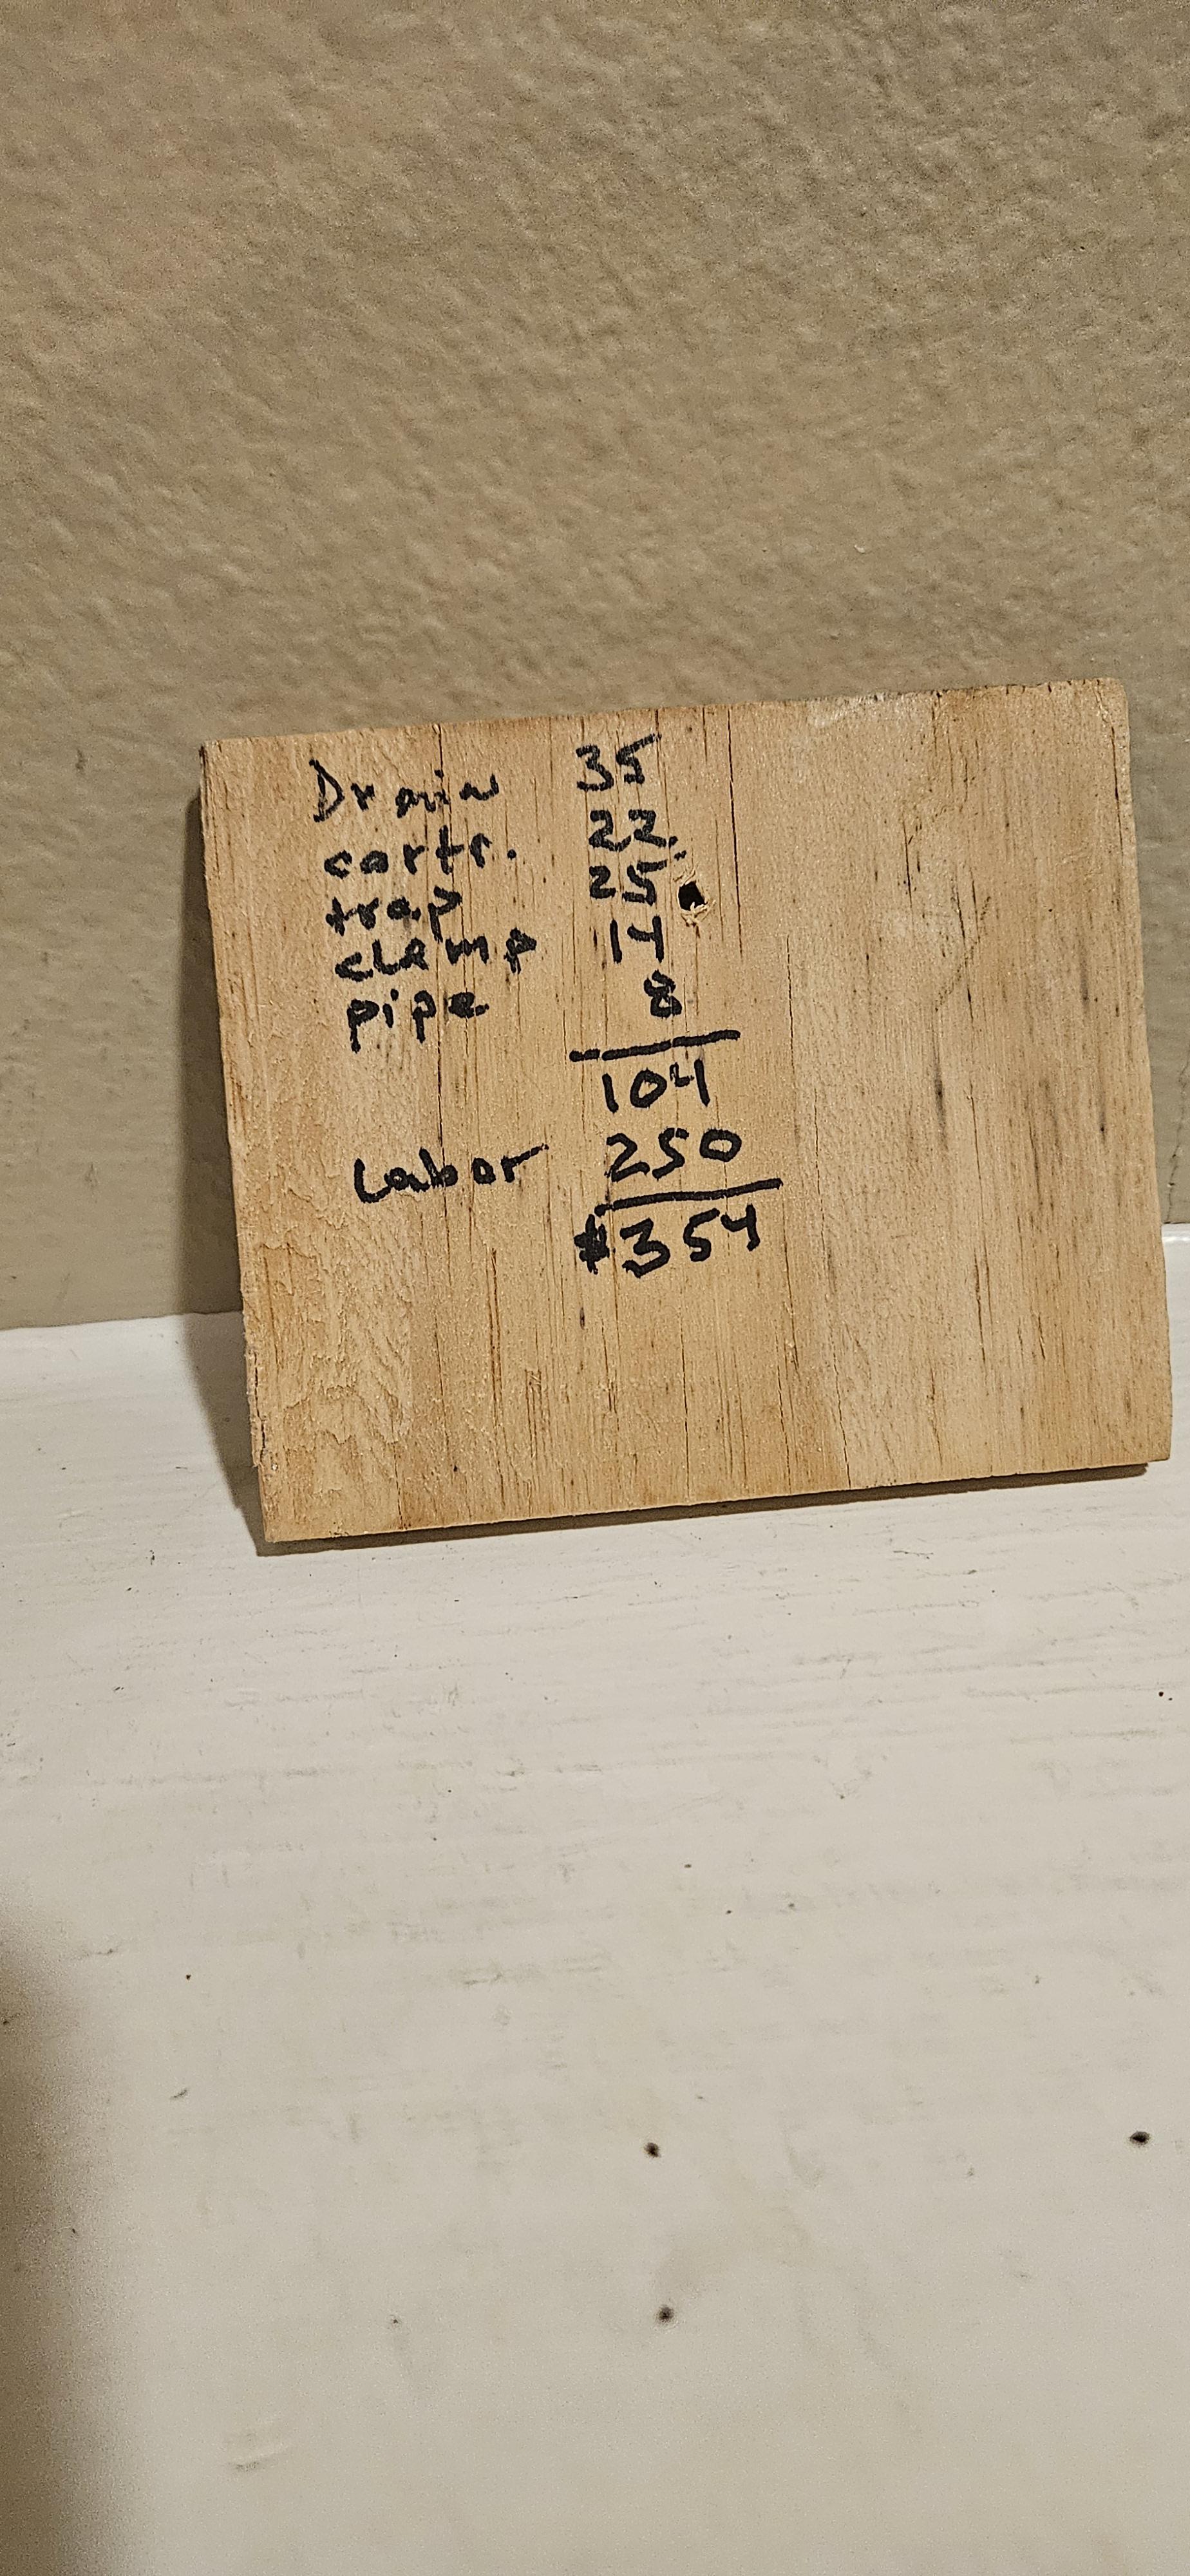 Drain 35
cartr. 22.
trap 25
clamp 14
pipe 8
104
Labor 250
$354